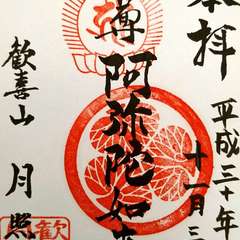 奉拝
平成三十年
十一月三
尊 阿弥陀如来
歓喜山 月照
歓喜